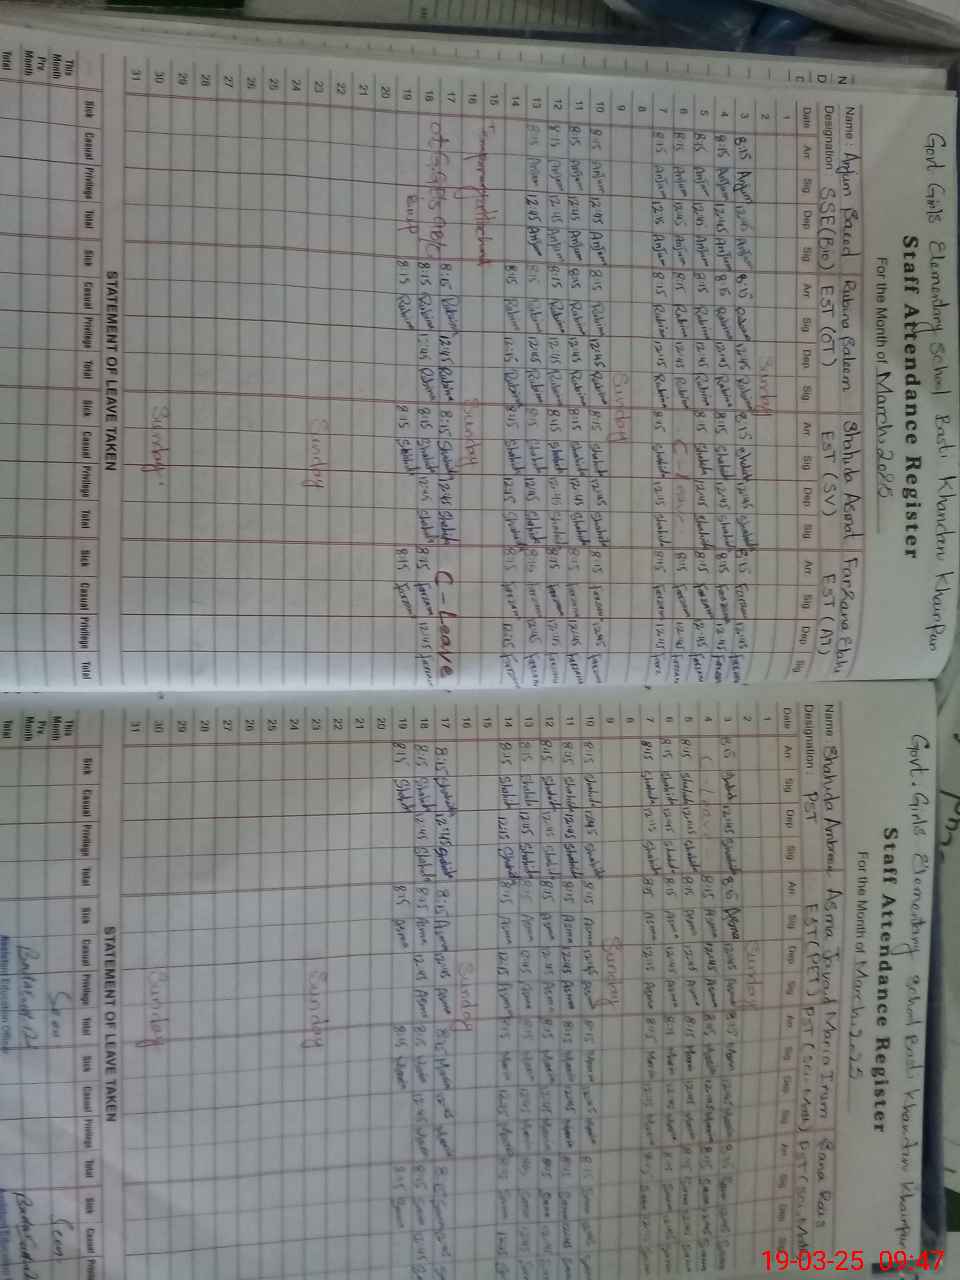 Govt. Girls Elementary School Basti Khandani Khairpur
Staff Attendance Register
For the Month of March, 2025
Name: Anjum Rubina Shahida Asmat Farzana
Designation SSE(Bio) EST (OT) EST (SV) EST (AT)
Date Arr Sig Dep Sig Arr Sig Dep Sig Arr Sig Dep Sig Arr Sig Dep Sig
1
2 Sunday
3 8:15 Anjum 12:45 Anjum 8:15 12:45 Rubina 8:15 Shahida 12:45 Shahida 8:15 Farzana 12:45
4 8:15 Anjum 12:45 Anjum 8:15 Rubina 12:45 Rubina 8:15 Shahida 12:45 Shahida 8:15 Farzana 12:45 Farzana
5 8:15 Anjum 12:45 Anjum 8:15 Rubina 12:45 Rubina 8:15 Shahida 12:45 Shahida 8:15 Farzana 12:45
6 8:15 Anjum 12:45 Anjum 8:15 Rubina 12:45 Rubina C - Leave 8:15 Farzana 12:45 Farzana
7 8:15 Anjum 12:15 Anjum 8:15 Rubina 12:15 Rubina 8:15 Shahida 12:15 Shahida 8:15 Farzana 12:15
8
9 Sunday
10 8:15 Anjum 12:45 Anjum 8:15 Rubina 12:45 Rubina 8:15 Shahida 12:45 Shahida 8:15 Farzana 12:45
11 8:15 Anjum 12:45 Anjum 8:15 Rubina 12:45 Rubina 8:15 Shahida 12:45 Shahida 8:15 Farzana 12:45 Farzana
12 8:15 Anjum 12:45 Anjum 8:15 Rubina 12:45 Rubina 8:15 Shahida 12:45 Shahida 8:15 Farzana 12:45 Farzana
13 8:15 Anjum 12:45 Anjum 8:15 Rubina 12:45 Rubina 8:15 Shahida 12:45 Shahida 8:15 Farzana 12:45 Farzana
14 8:15 Rubina 12:15 Rubina 8:15 Shahida 12:15 Shahida 8:15 Farzana 12:15
15
16 Sunday
17 8:15 Rubina 12:45 Rubina 8:15 Shahida 12:45 Shahida C - Leave
18 8:15 Rubina 12:45 Rubina 8:15 Shahida 12:45 Shahida 8:15 Farzana 12:45 Farzana
19 8:15 Rubina 8:15 Shahida 8:15 Farzana
20
21
22
23 Sunday
24
25
26
27
28
29
30 Sunday
31
STATEMENT OF LEAVE TAKEN
Sick Casual Privilege Total Sick Casual Privilege Total Sick Casual Privilege Total Sick Casual Privilege Total
This Month
Prv. Month
Total
Govt. Girls Elementary School Basti Khandani Khairpur
Staff Attendance Register
For the Month of March, 2025
Name Shahida Ambreen Asma Javaid Maria Irum Sana
Designation: PST EST (PET) PST (Sci-Math) PST (Sci-Math)
Date Arr Sig Dep Sig Arr Sig Dep Sig Arr Sig Dep Sig Arr Sig Dep Sig
1
2 Sunday
3 8:15 Shahida 12:45 Shahida 8:15 Asma 12:45 Asma 8:15 Maria 12:45 Maria 8:15 Sana 12:45 Sana
4 C - Leave 8:15 Asma 12:45 Asma 8:15 Maria 12:45 Maria 8:15 Sana 12:45 Sana
5 8:15 Shahida 12:45 Shahida 8:15 Asma 12:45 Asma 8:15 Maria 12:45 Maria 8:15 Sana 12:45 Sana
6 8:15 Shahida 12:45 Shahida 8:15 Asma 12:45 Asma 8:15 Maria 12:45 Maria 8:15 Sana 12:45 Sana
7 8:15 Shahida 12:15 Shahida 8:15 Asma 12:15 Asma 8:15 Maria 12:15 Maria 8:15 Sana 12:15 Sana
8
9 Sunday
10 8:15 Shahida 12:45 Shahida 8:15 Asma 12:45 Asma 8:15 Maria 12:45 Maria 8:15 Sana 12:45
11 8:15 Shahida 12:45 Shahida 8:15 Asma 12:45 Asma 8:15 Maria 12:45 Maria 8:15 Sana 12:45 Sana
12 8:15 Shahida 12:45 Shahida 8:15 Asma 12:45 Asma 8:15 Maria 12:45 Maria 8:15 Sana 12:45 Sana
13 8:15 Shahida 12:45 Shahida 8:15 Asma 12:45 Asma 8:15 Maria 12:45 Maria 8:15 Sana 12:45 Sana
14 8:15 Shahida 12:15 Shahida 8:15 Asma 12:15 Asma 8:15 Maria 12:15 Maria 8:15 Sana 12:15 Sana
15
16 Sunday
17 8:15 Shahida 12:45 Shahida 8:15 Asma 12:45 Asma 8:15 Maria 12:45 Maria 8:15 Sana 12:45 Sana
18 8:15 Shahida 12:45 Shahida 8:15 Asma 12:45 Asma 8:15 Maria 12:45 Maria 8:15 Sana 12:45 Sana
19 8:15 Shahida 8:15 Asma 8:15 Maria 8:15 Sana
20
21
22
23 Sunday
24
25
26
27
28
29
30 Sunday
31
STATEMENT OF LEAVE TAKEN
Sick Casual Privilege Total Sick Casual Privilege Total Sick Casual Privilege Total Sick Casual
This Month Seen
Prv. Month
Total
19-03-25 09:47